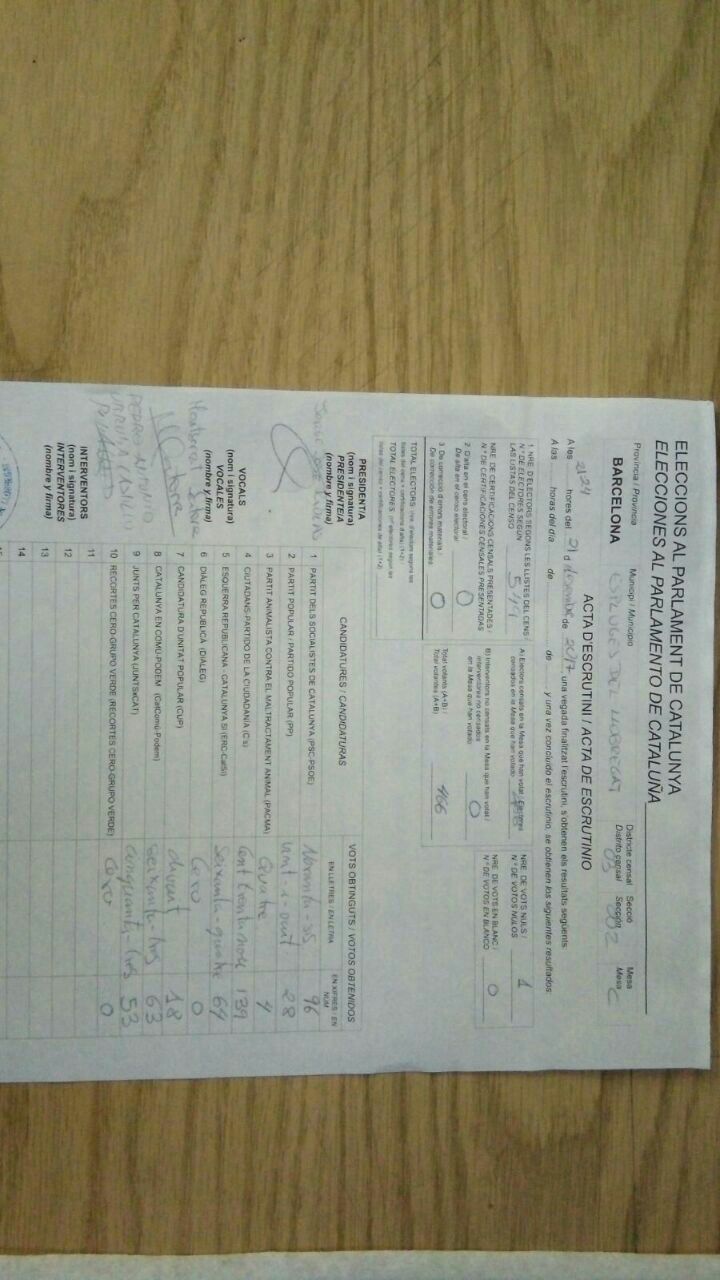 ELECCIONS AL PARLAMENT DE CATALUNYA
ELECCIONES AL PARLAMENTO DE CATALUÑA
Província / Provincia Municipi / Municipio Districte censal Secció Mesa
Distrito censal Sección Mesa
BARCELONA ESPLUGUES DEL LLOBREGAT 03 002 C
ACTA D'ESCRUTINI / ACTA DE ESCRUTINIO
A les 21,24 hores del 21 d desembre de 2017, una vegada finalitzat l'escrutini, s'obtenen els resultats següents
A las horas del día de de y una vez concluido el escrutinio, se obtienen los siguientes resultados:
1. NRE. D'ELECTORS SEGONS LES LLISTES DEL CENS /
N.º DE ELECTORES SEGÚN
LAS LISTAS DEL CENSO
NRE. DE CERTIFICACIONS CENSALS PRESENTADES /
N.º DE CERTIFICACIONES CENSALES PRESENTADAS
2. D'alta en el cens electoral /
De alta en el censo electoral
0
3. De correcció d'errors materials /
De corrección de errores materiales
0
A) Electors censats en la Mesa que han votat / Electores
censados en la Mesa que han votado
B) Interventors no censats en la Mesa que han votat /
Interventores no censados
en la Mesa que han votado
0
Total votants (A+B) /
Total votantes (A+B)
466
NRE. DE VOTS NULS /
N.º DE VOTOS NULOS
1
NRE. DE VOTS EN BLANC /
N.º DE VOTOS EN BLANCO
0
PRESIDENT/A
(nom i signatura)
PRESIDENTE/A
(nombre y firma)
VOCALS
(nom i signatura)
VOCALES
(nombre y firma)
INTERVENTORS
(nom i signatura)
INTERVENTORES
(nombre y firma)
CANDIDATURES / CANDIDATURAS
VOTS OBTINGUTS / VOTOS OBTENIDOS
EN LLETRES / EN LETRA EN XIFRES / EN NÚM
1 PARTIT DELS SOCIALISTES DE CATALUNYA (PSC-PSOE) Noranta-sis 96
2 PARTIT POPULAR - PARTIDO POPULAR (PP) Vint-i-vuit 28
3 PARTIT ANIMALISTA CONTRA EL MALTRACTAMENT ANIMAL (PACMA) Quatre 4
4 CIUTADANS-PARTIDO DE LA CIUDADANÍA (C's) Cent trenta nou 139
5 ESQUERRA REPUBLICANA - CATALUNYA SÍ (ERC-CatSí) Seixanta-quatre 64
6 DIÀLEG REPUBLICÀ (DIÀLEG) Cero 0
7 CANDIDATURA D'UNITAT POPULAR (CUP) divuit 18
8 CATALUNYA EN COMÚ-PODEM (CatComú-Podem) Seixanta-tres 63
9 JUNTS PER CATALUNYA (JUNTSxCAT) Cinquanta-tres 53
10 RECORTES CERO-GRUPO VERDE (RECORTES CERO-GRUPO VERDE) Cero 0
11
12
13
14
15